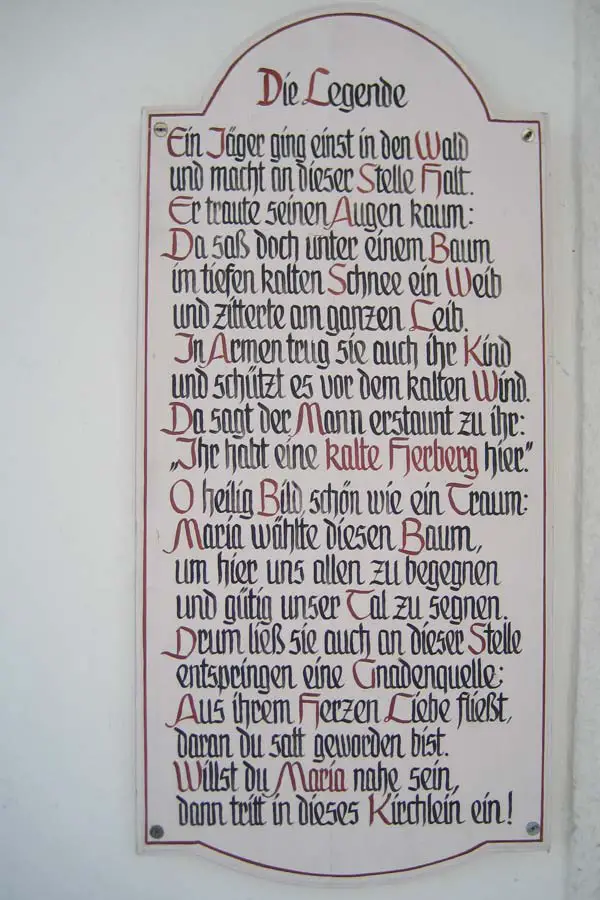 Die Legende
Ein Jäger ging einst in den Wald
und macht an dieser Stelle Halt.
Er traute seinen Augen kaum:
Da saß doch unter einem Baum
im tiefen kalten Schnee ein Weib
und zitterte am ganzen Leib.
In Armen trug sie auch ihr Kind
und schützt es vor dem kalten Wind.
Da sagt der Mann erstaunt zu ihr:
„Ihr habt eine kalte Herberg hier.”
O heilig Bild, schön wie ein Traum:
Maria wählte diesen Baum,
um hier uns allen zu begegnen
und gütig unser Tal zu segnen.
Drum ließ sie auch an dieser Stelle
entspringen eine Gnadenquelle:
Aus ihrem Herzen Liebe fließt,
daran du satt geworden bist.
Willst du Maria nahe sein,
dann tritt in dieses Kirchlein ein!